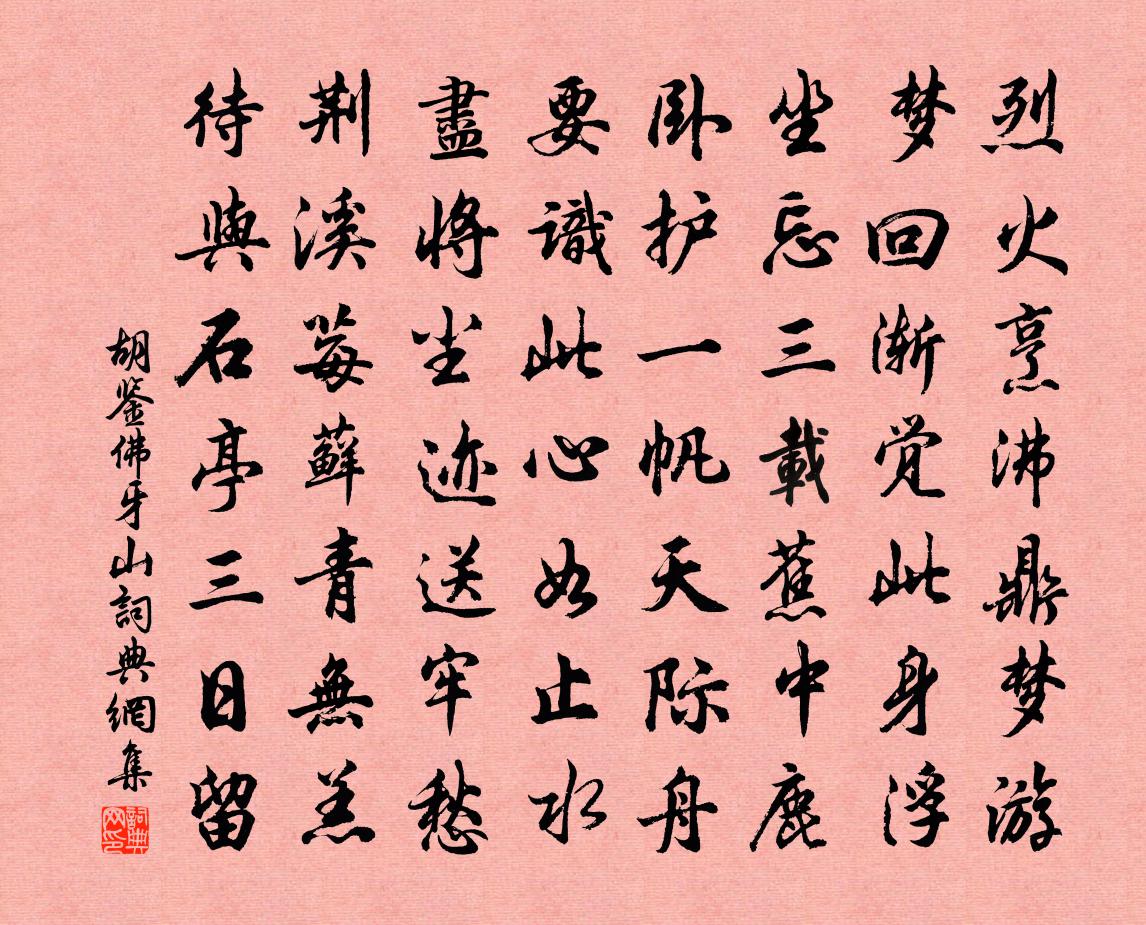 烈火亨沸鼎梦游
梦回渐觉此身浮
坐忘三載蕉中鹿
卧护一帆天际舟
要識此心如止水
盡將尘迹送牢愁
荆溪莓蘚青無恙
待與石亭三日留
胡鉴佛牙山詞典網集
詞典网印